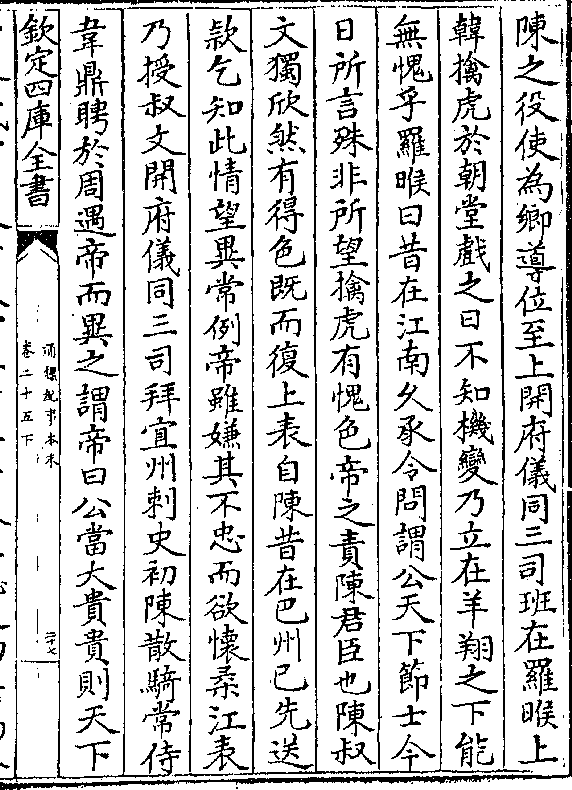 陳之役使為鄉導位至上開府儀同三司班在羅睺上
韓擒虎於朝堂戲之曰不知機變乃立在羊翔之下能
無愧乎羅睺曰昔在江南久承令問謂公天下節士今
日所言殊非所望擒虎有愧色帝之責陳君臣也陳叔
文獨欣然有得色既而復上表自陳昔在巴州已先送
款乞知此情望異常例帝雖嫌其不忠而欲懷柔江表
乃授叔文開府儀同三司拜宜州刺史初陳散騎常侍
韋鼎聘於周遇帝而異之謂帝曰公當大貴貴則天下
欽定四庫全書
通鑑紀事本末
卷二十五下
二十七